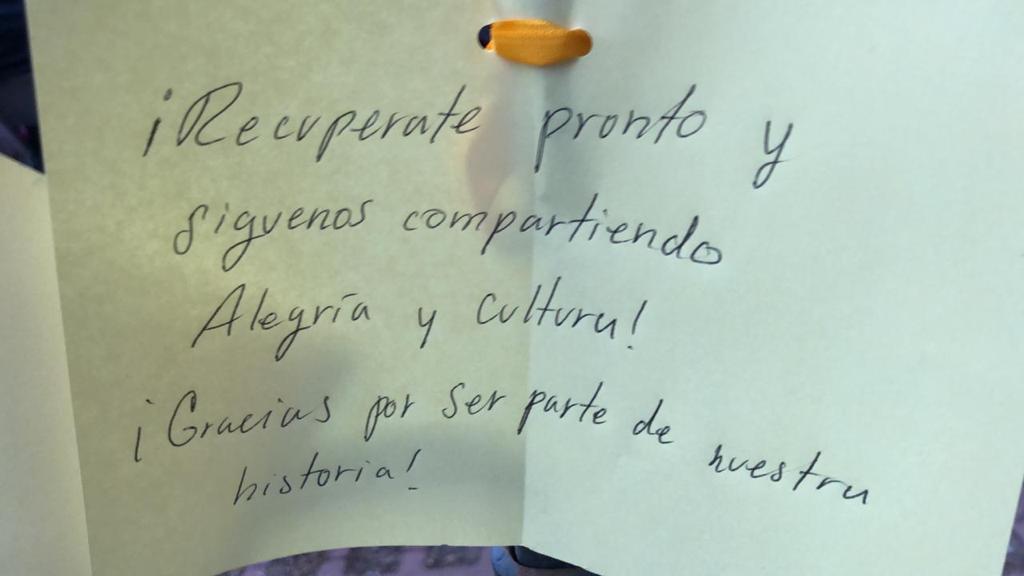 ¡Recuperate pronto y
siguenos compartiendo
Alegría y cultura!
¡Gracias por ser parte de nuestra
historia!